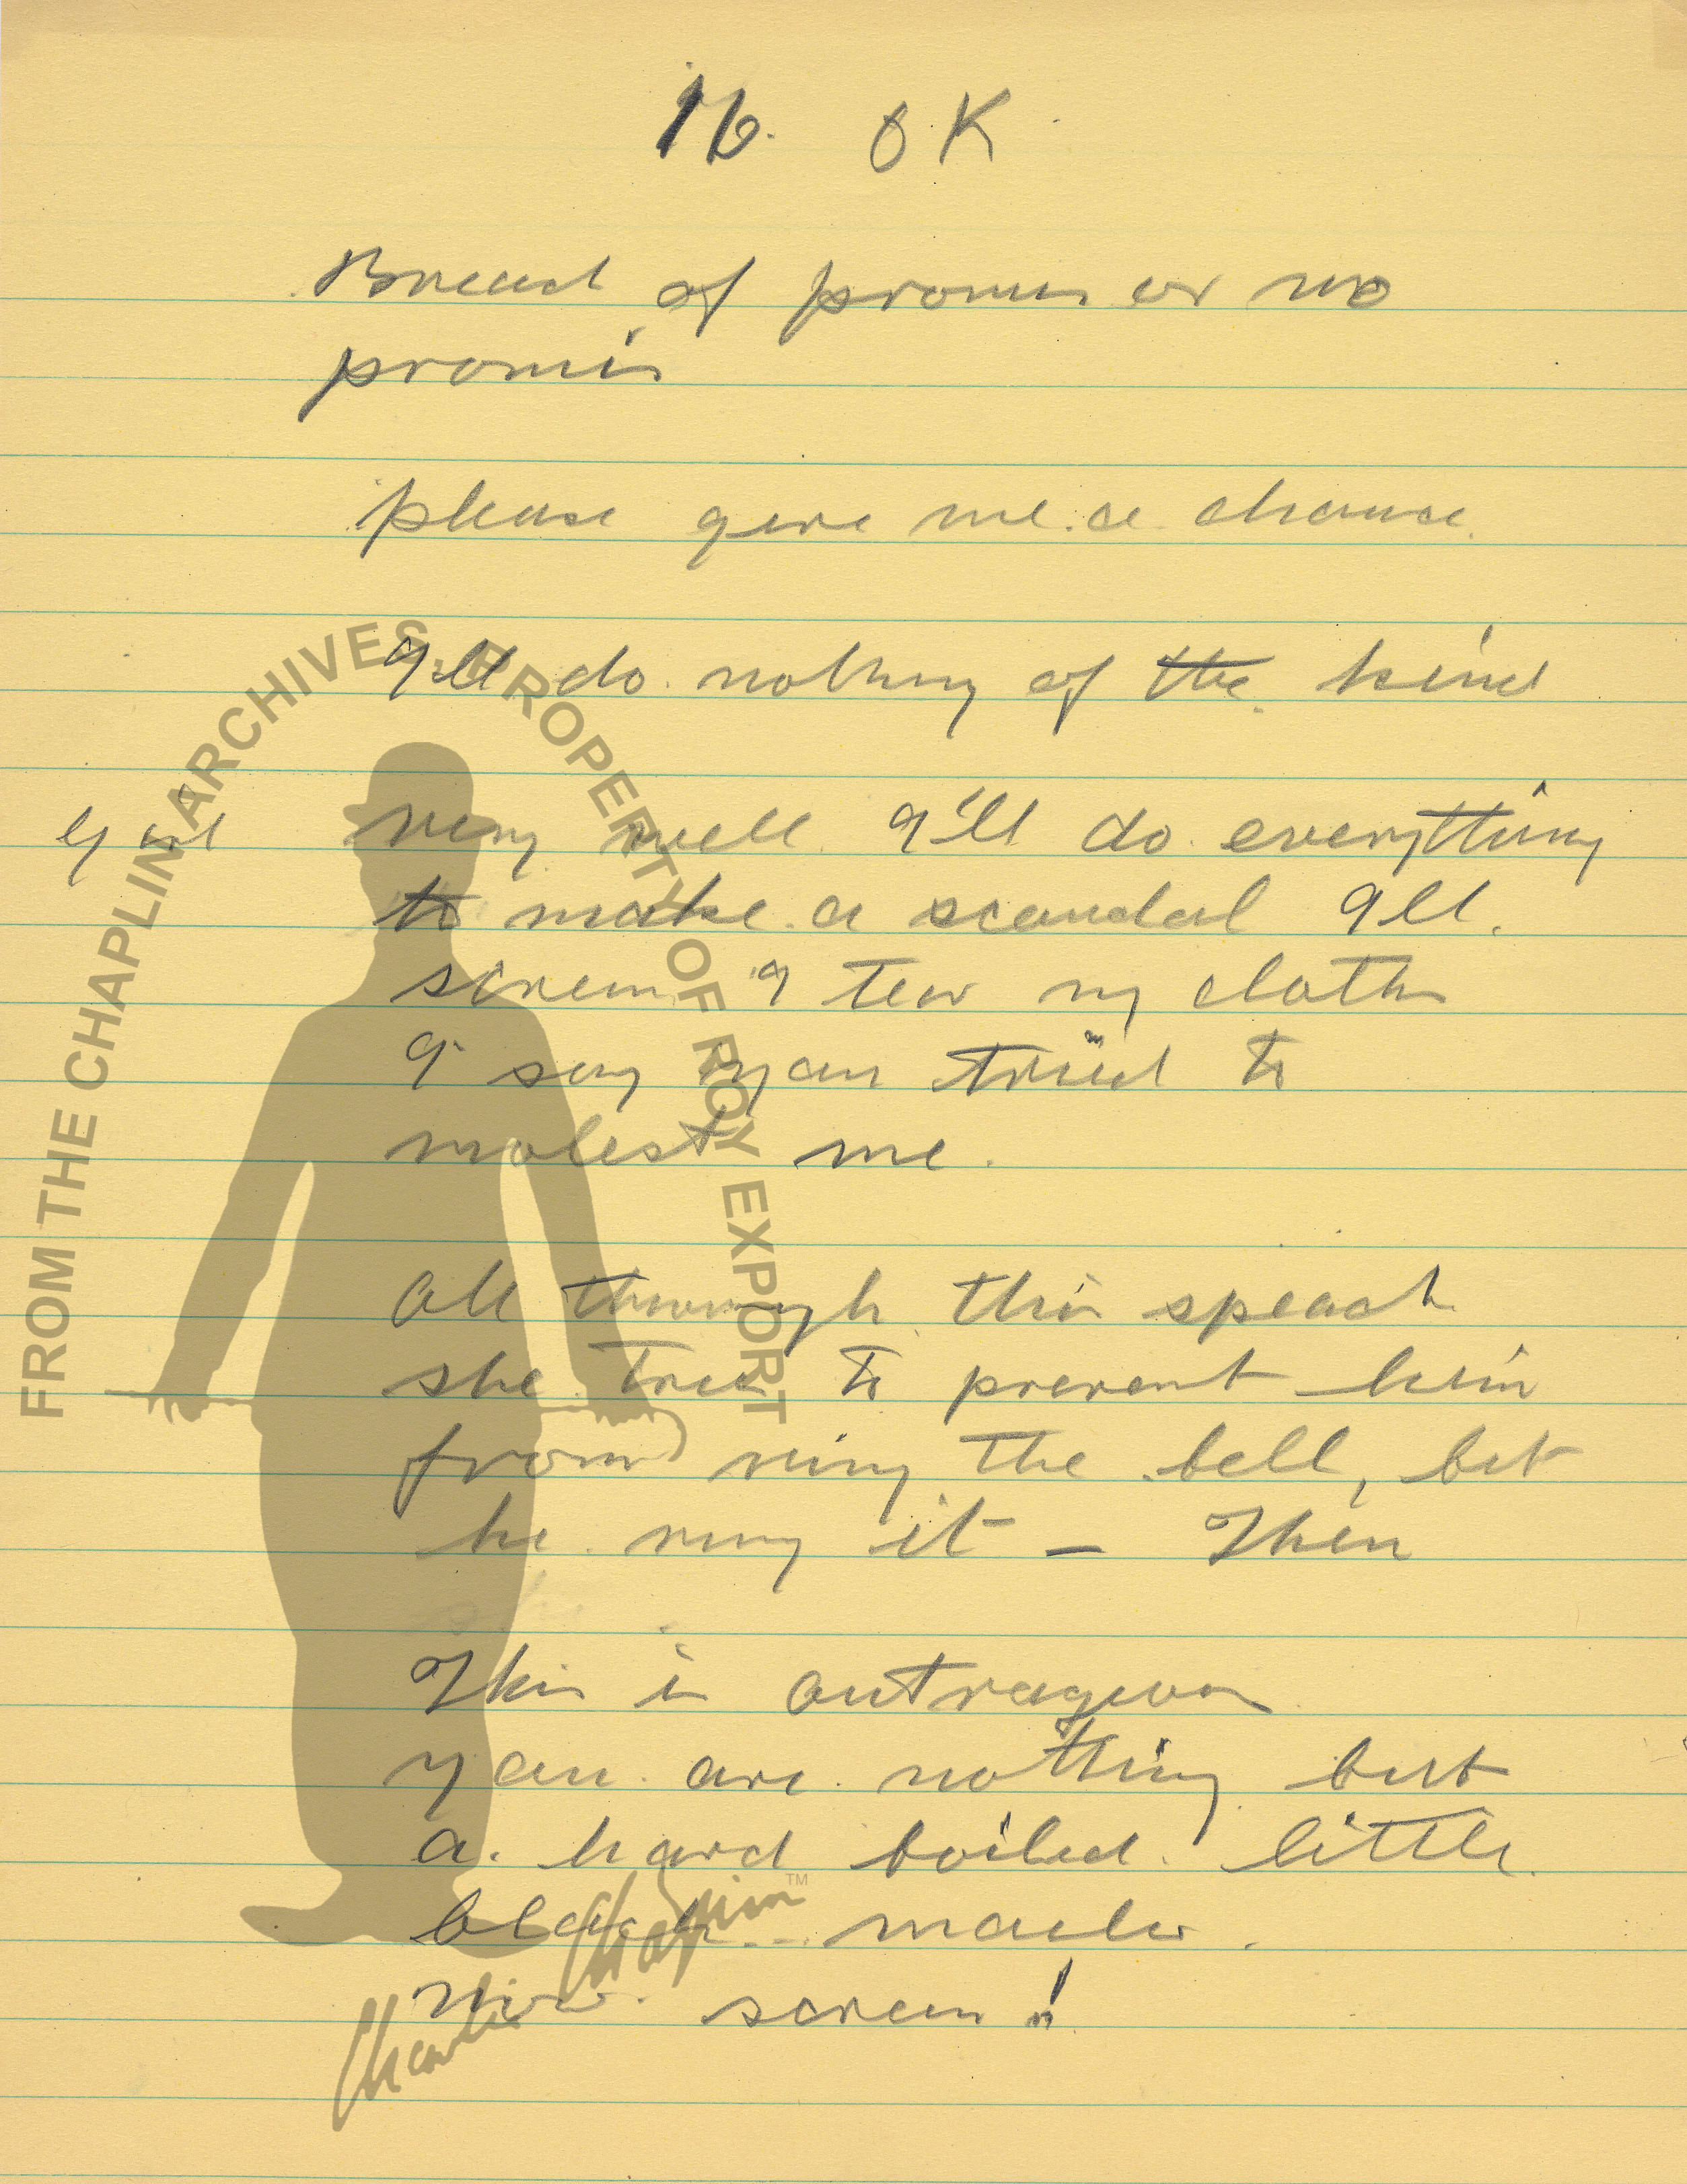 16. OK
Breach of promis or no
promis
please give me a chance.
I'll do nothing of the kind
Girl very well I'll do everything
to make a scandal I'll.
screem I tear my cloths
I say you tried to
molest me.
All through this speach
she tries to prevent him
from ring the bell, but
he rung it — Then
This is outrageous
you are nothing but
a. hard boiled little
black mailer.
Now screem!
FROM THE CHAPLIN ARCHIVES. PROPERTY OF ROY EXPORT
Charlie Chaplin™